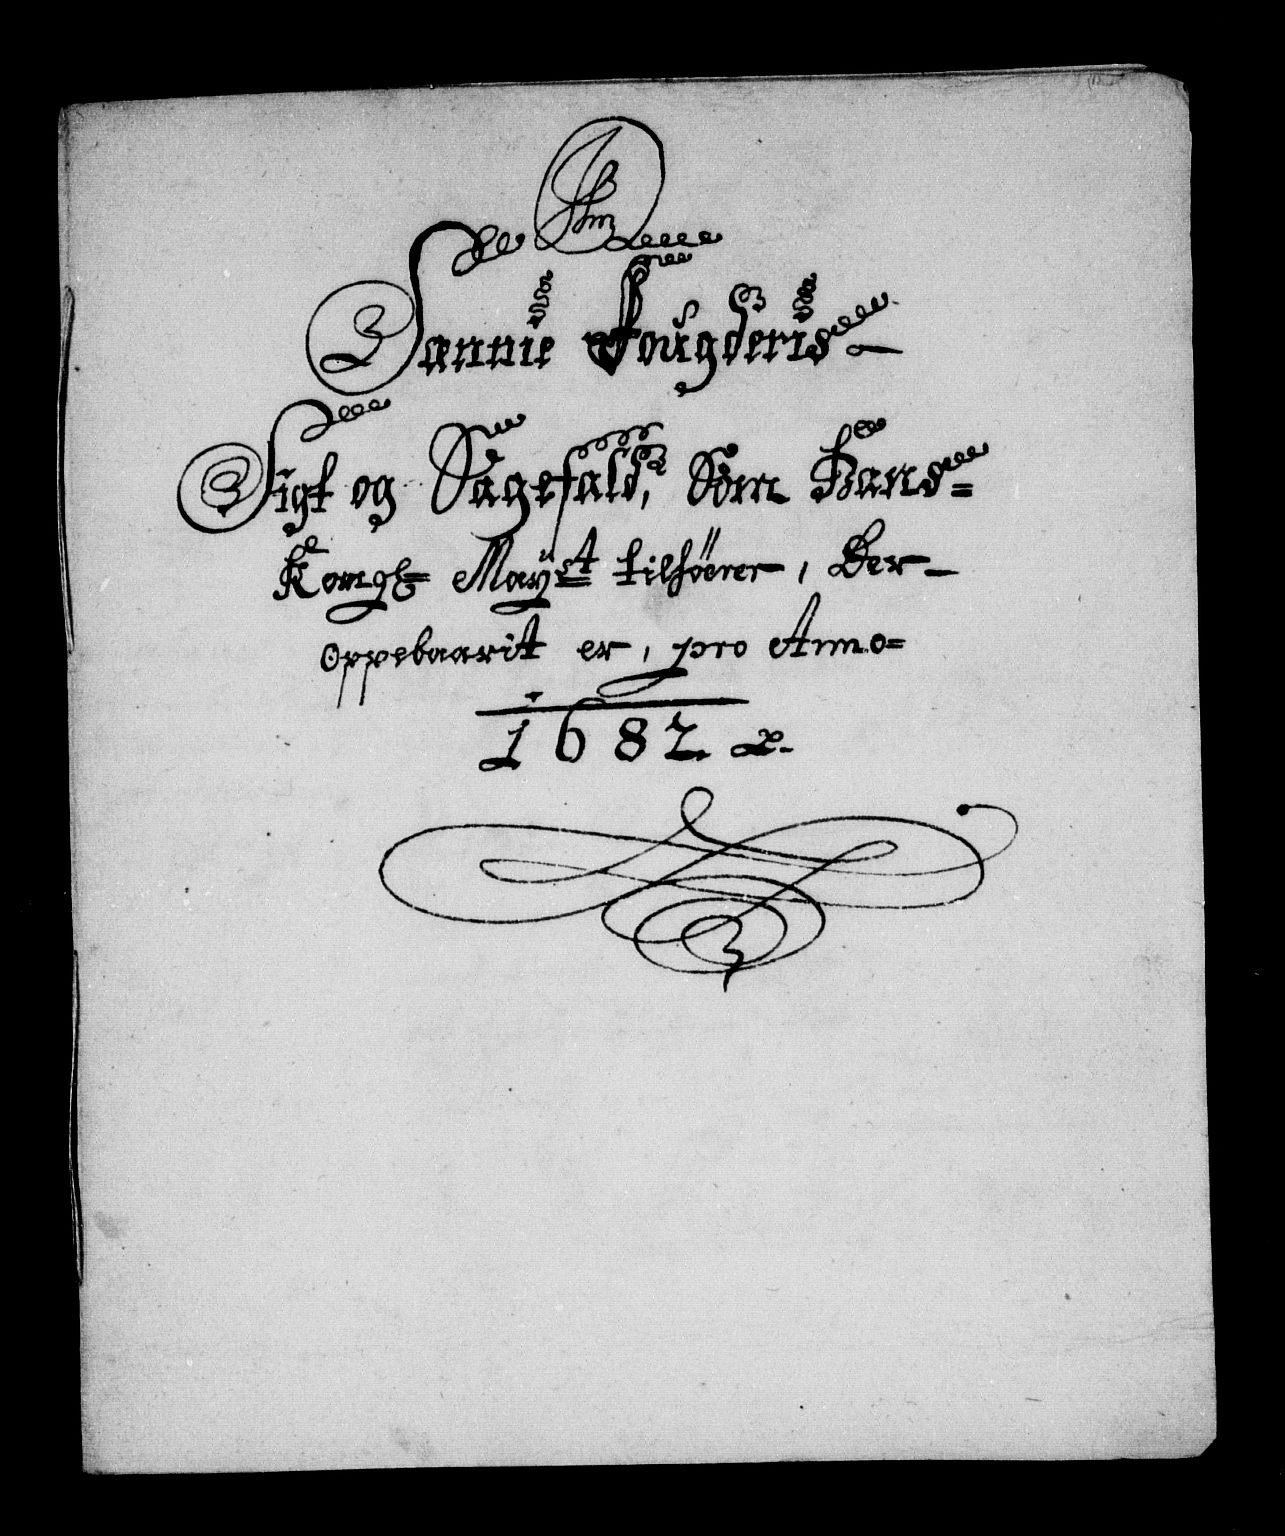 Sannie Fougderis
Sigt og Sagefald, Som Hans=
Kongl= Mayst tilhörer, Der-
oppebaarit er, pro Anno=
1682.